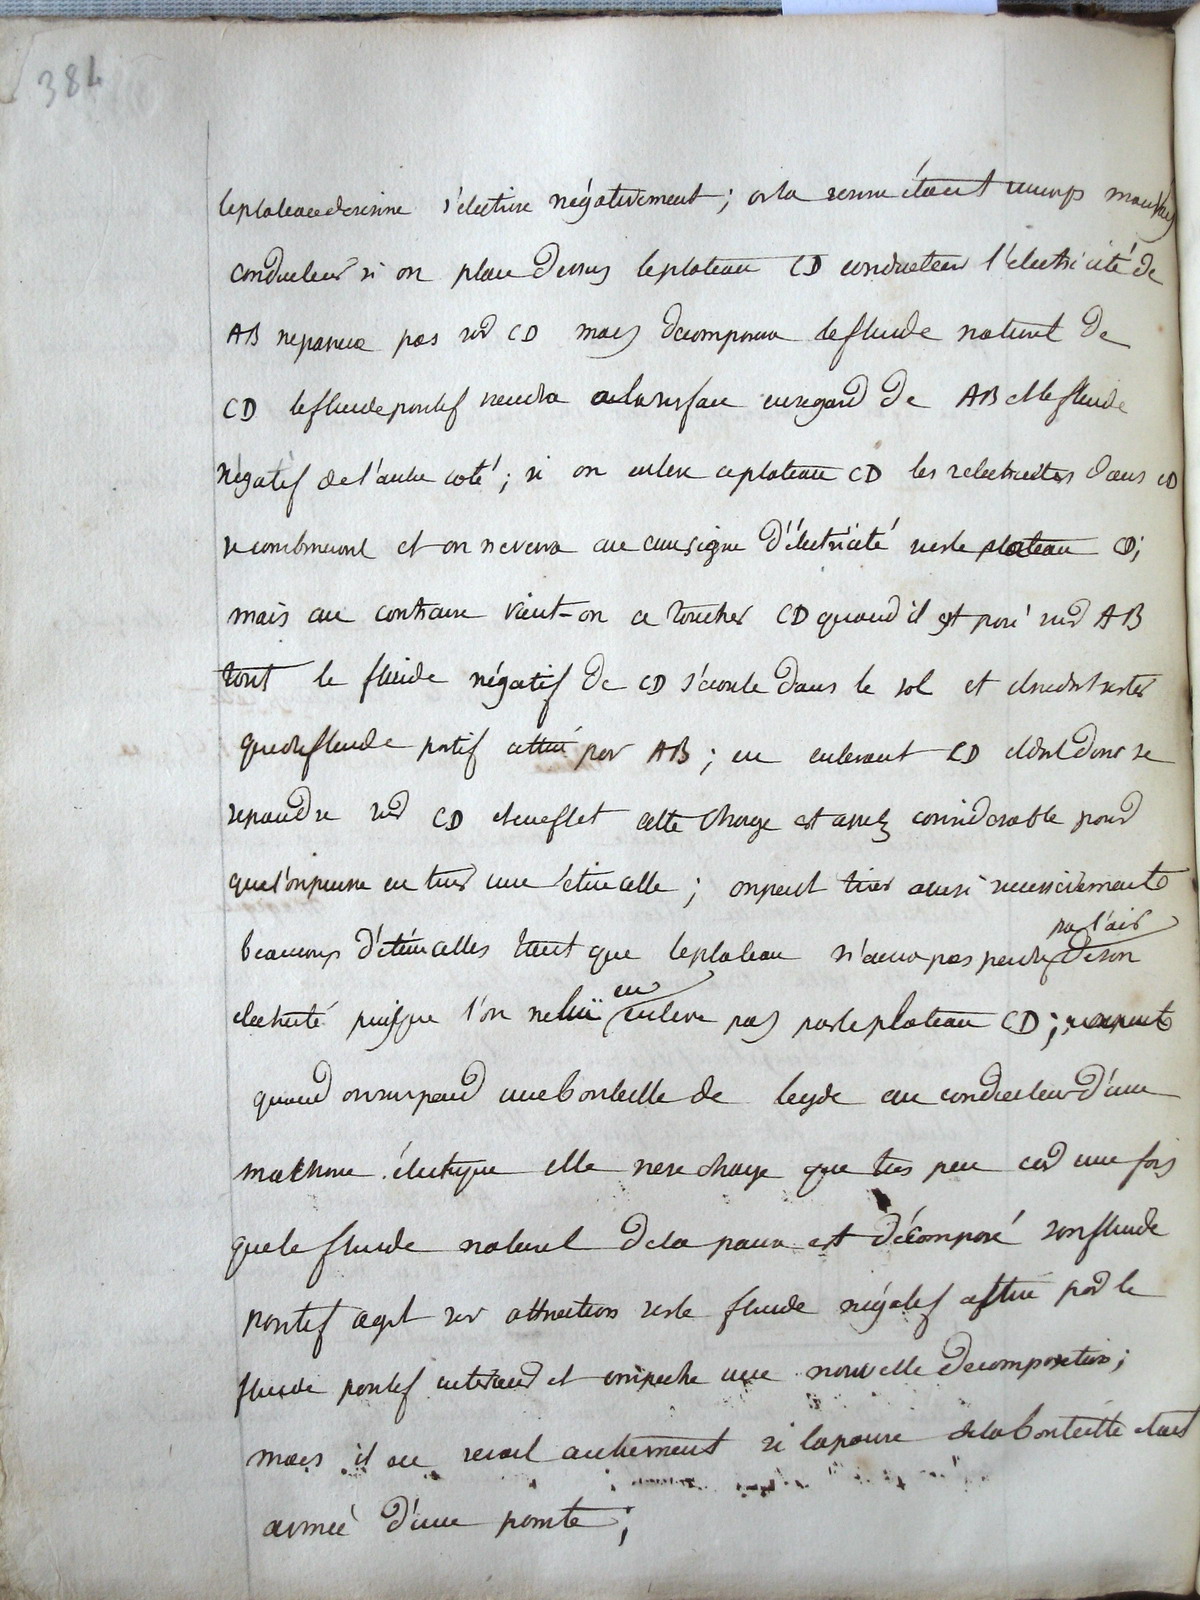 384
le plateau de resine s'électrise négativement; or la resine étant un corps mauvais
conducteur si on place dessus le plateau CD conducteur l'électricité de
AB ne passera pas sur CD mais décomposera le fluide naturel de
CD le fluide positif viendra à la surface en regard de AB et le fluide
négatif de l'autre coté; si on enleve ce plateau CD les 2 electricites dans CD
se combineront et on ne verra aucun signe d'électricité sur le plateau CD;
mais au contraire vient-on a toucher CD quand il est posé sur AB
tout le fluide négatif de CD s'écoule dans le sol et il ne doit rester
que du fluide positif attiré par AB; en enlevant CD il doit donc se
repandre sur CD et en effet cette charge est assez considerable pour
que l'on puisse en tirer une étincelle; on peut tirer ainsi successivement
beaucoup d'étincelles tant que le plateau n'aura pas perdu par l'air de son
electricité puisque l'on ne lui en enleve pas par le plateau CD;
quand on suspend une bouteille de leyde au conducteur d'une
machine électrique elle ne se charge que très peu car une fois
que le fluide naturel de la paroi est décomposé son fluide
positif agit par attraction sur le fluide négatif attiré par le
fluide positif interieur et empeche une nouvelle decomposition;
mais il en serait autrement si la paroi de la bouteille etait
armée d'une pointe;